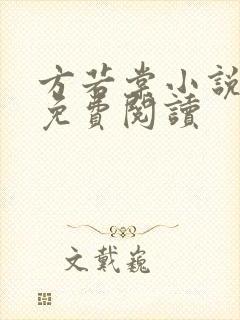 方若棠小説
免費閱讀
文戴巍